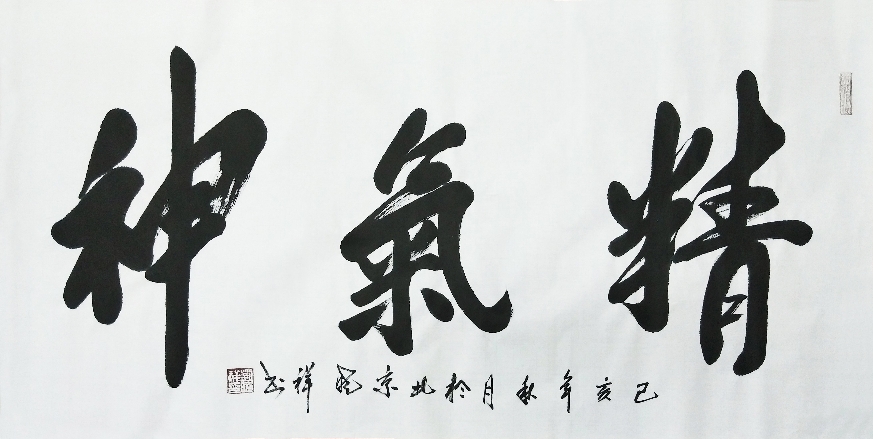 精氣神
己亥年秋月於北京
祥書